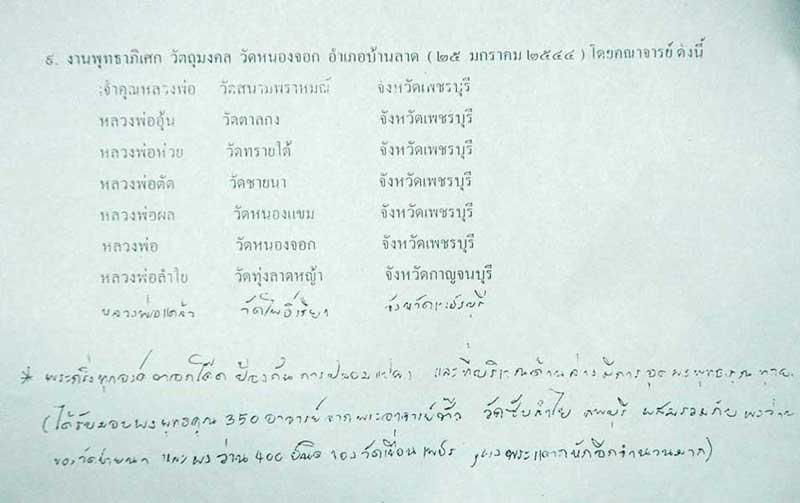 ๕. งานพุทธาภิเศก วัตถุมงคล วัดหนองจอก อำเภอบ้านลาด (๒๕ มกราคม ๒๕๔๔) โดยคณาจารย์ ดังนี้
เจ้าคุณหลวงพ่อ วัดสนามพราหมณ์ จังหวัดเพชรบุรี
หลวงพ่ออุ้น วัดตาลกง จังหวัดเพชรบุรี
หลวงพ่อห่วย วัดทรายใต้ จังหวัดเพชรบุรี
หลวงพ่อตัด วัดชายนา จังหวัดเพชรบุรี
หลวงพ่อผล วัดหนองแขม จังหวัดเพชรบุรี
หลวงพ่อ วัดหนองจอก จังหวัดเพชรบุรี
หลวงพ่อลำไย วัดทุ่งลาดหญ้า จังหวัดกาญจนบุรี
หลวงพ่อแคล้ว จังหวัดเพชรบุรี
* พระกริ่งทุกองค์ ตอกโค๊ด ป้องกัน การปลอมแปลง และที่บริเวณด้านล่างมีการอุดผงพุทธคุณ
(ได้รับมอบผงพุทธคุณ 350 อาจารย์ จากพระอาจารย์ วัดชัยลำไย ลพบุรี ผสมรวมกับ ผงว่าน
ของวัดชายนา และผงว่าน 400 ชนิด ของวัดเขื่อนเพชร ผงพระแตกหักอีกจำนวนมาก)